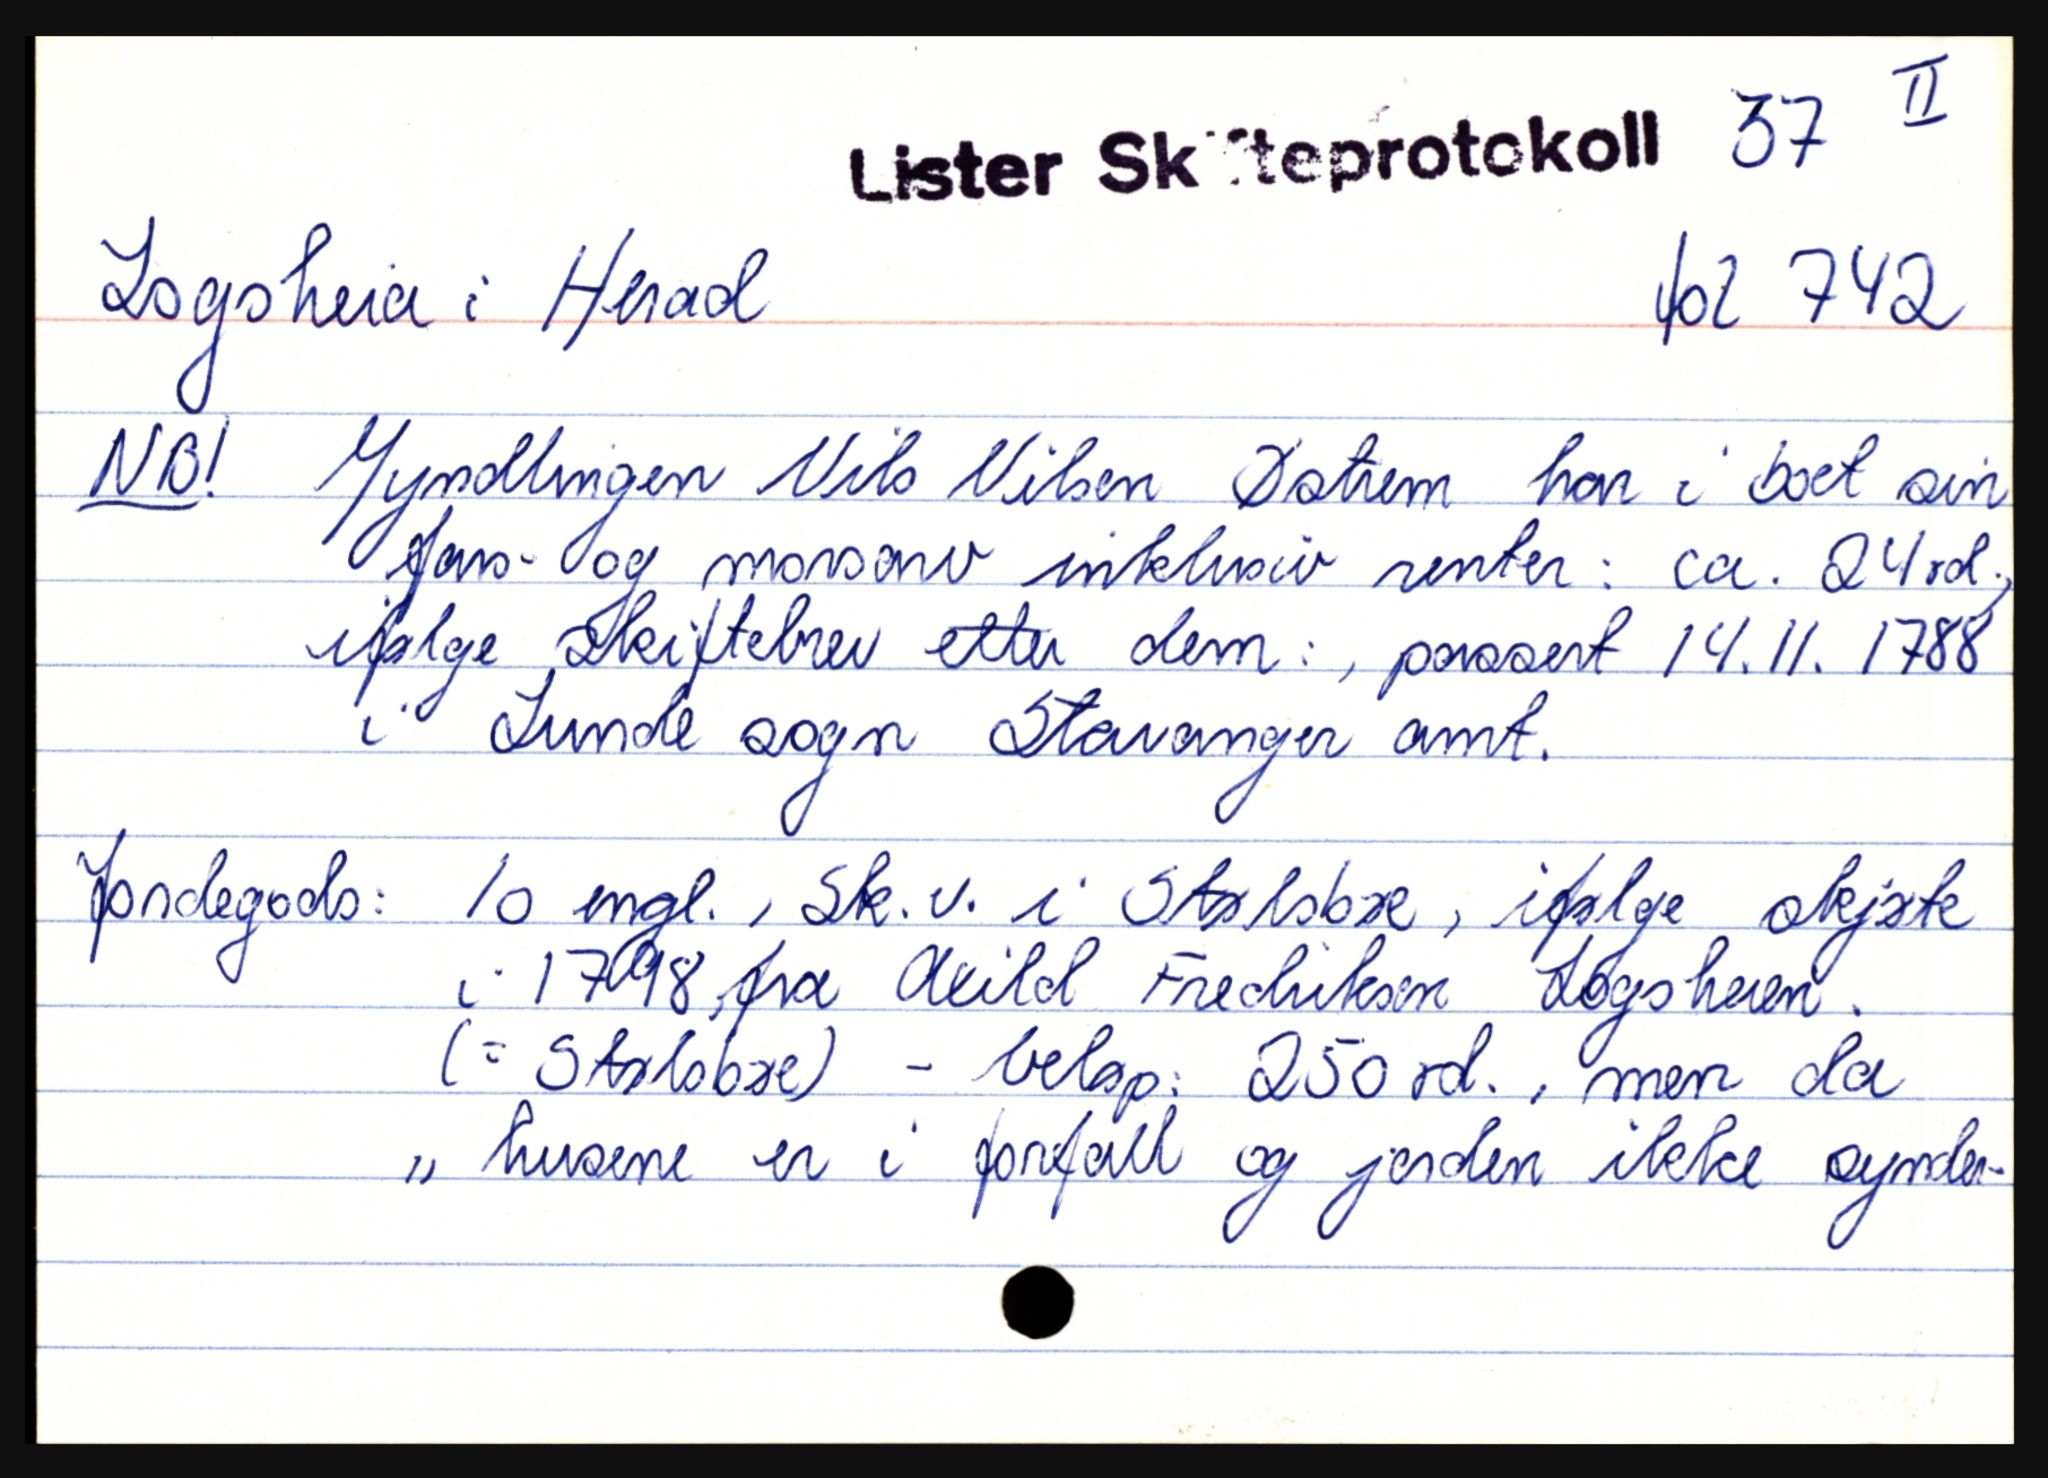 II
Lister Skifteprotokoll 37
Logsheia i Herad fol 742
NB! Myndlingen Nils Nilsen Østrem har i boet sin
fars- og morsarv inklusiv renter: ca. 24 rd.,
ifølge Skiftebrev etter dem:, passert 14.11.1788
i Lunde sogn Stavanger amt.
Jordegods: 10 engl., Sk.v. i Stølsbøe, ifølge skjøte
i 1798, fra Axild Fredriksen Logsheien.
(= Stølsbøe) - beløp: 250 rd., men da
„ husene er i forfall og jorden ikke synder-